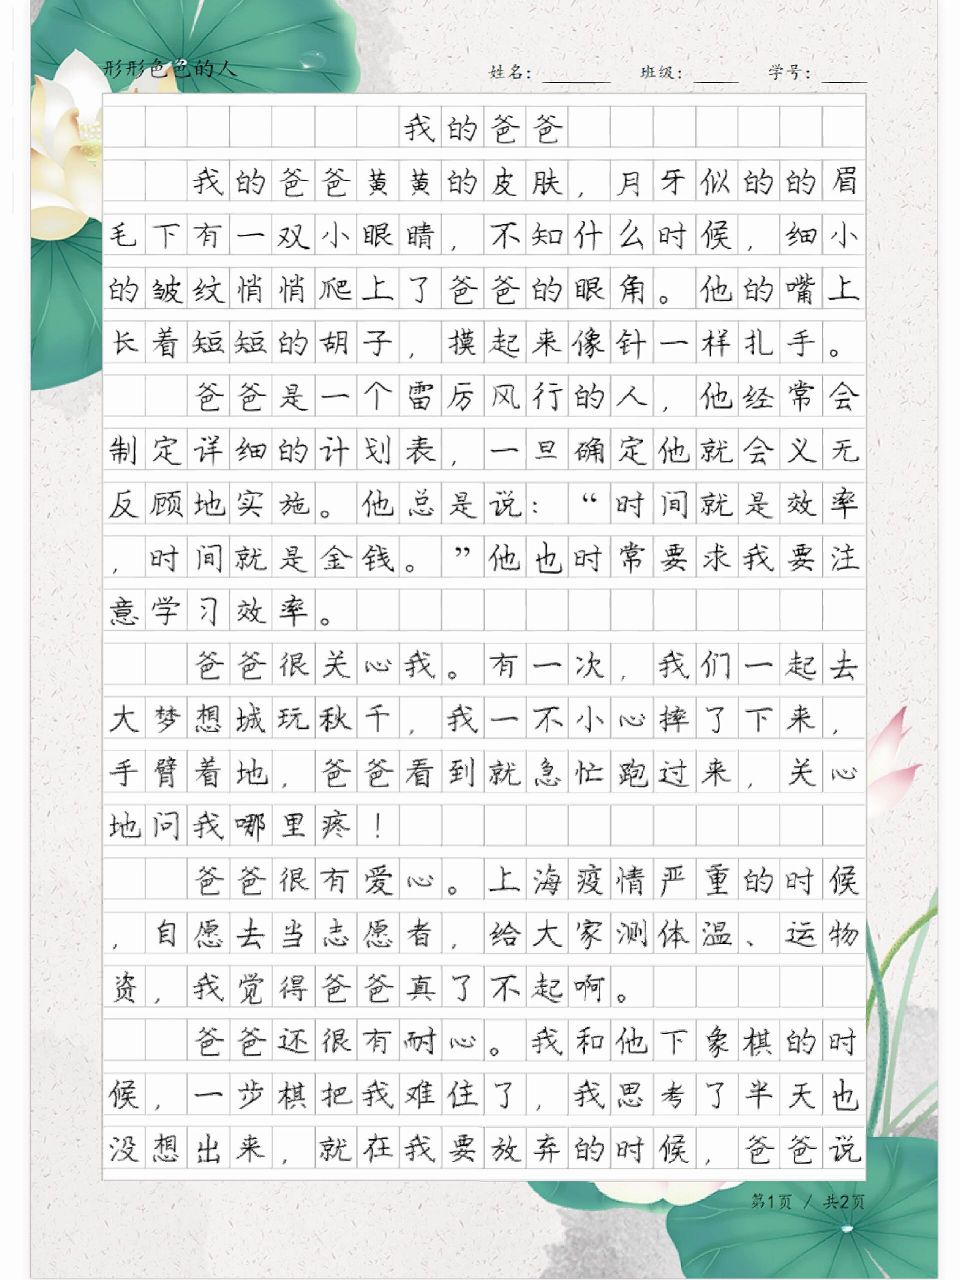 形形色色的人
姓名：______ 班级：____ 学号：____
我的爸爸
我的爸爸黄黄的皮肤，月牙似的的眉
毛下有一双小眼睛，不知什么时候，细小
的皱纹悄悄爬上了爸爸的眼角。他的嘴上
长着短短的胡子，摸起来像针一样扎手。
爸爸是一个雷厉风行的人，他经常会
制定详细的计划表，一旦确定他就会义无
反顾地实施。他总是说：“时间就是效率
，时间就是金钱。”他也时常要求我要注
意学习效率。
爸爸很关心我。有一次，我们一起去
大梦想城玩秋千，我一不小心摔了下来，
手臂着地，爸爸看到就急忙跑过来，关心
地问我哪里疼！
爸爸很有爱心。上海疫情严重的时候
，自愿去当志愿者，给大家测体温、运物
资，我觉得爸爸真了不起啊。
爸爸还很有耐心。我和他下象棋的时
候，一步棋把我难住了，我思考了半天也
没想出来，就在我要放弃的时候，爸爸说
第1页 / 共2页